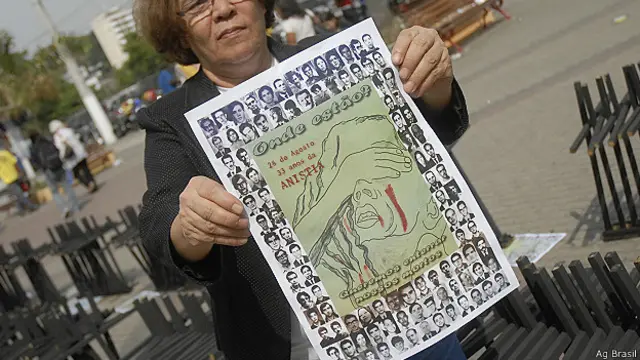 Onde estão?
28 de Agosto
33 anos da
ANISTIA
nossos mortos
Ag Brasil